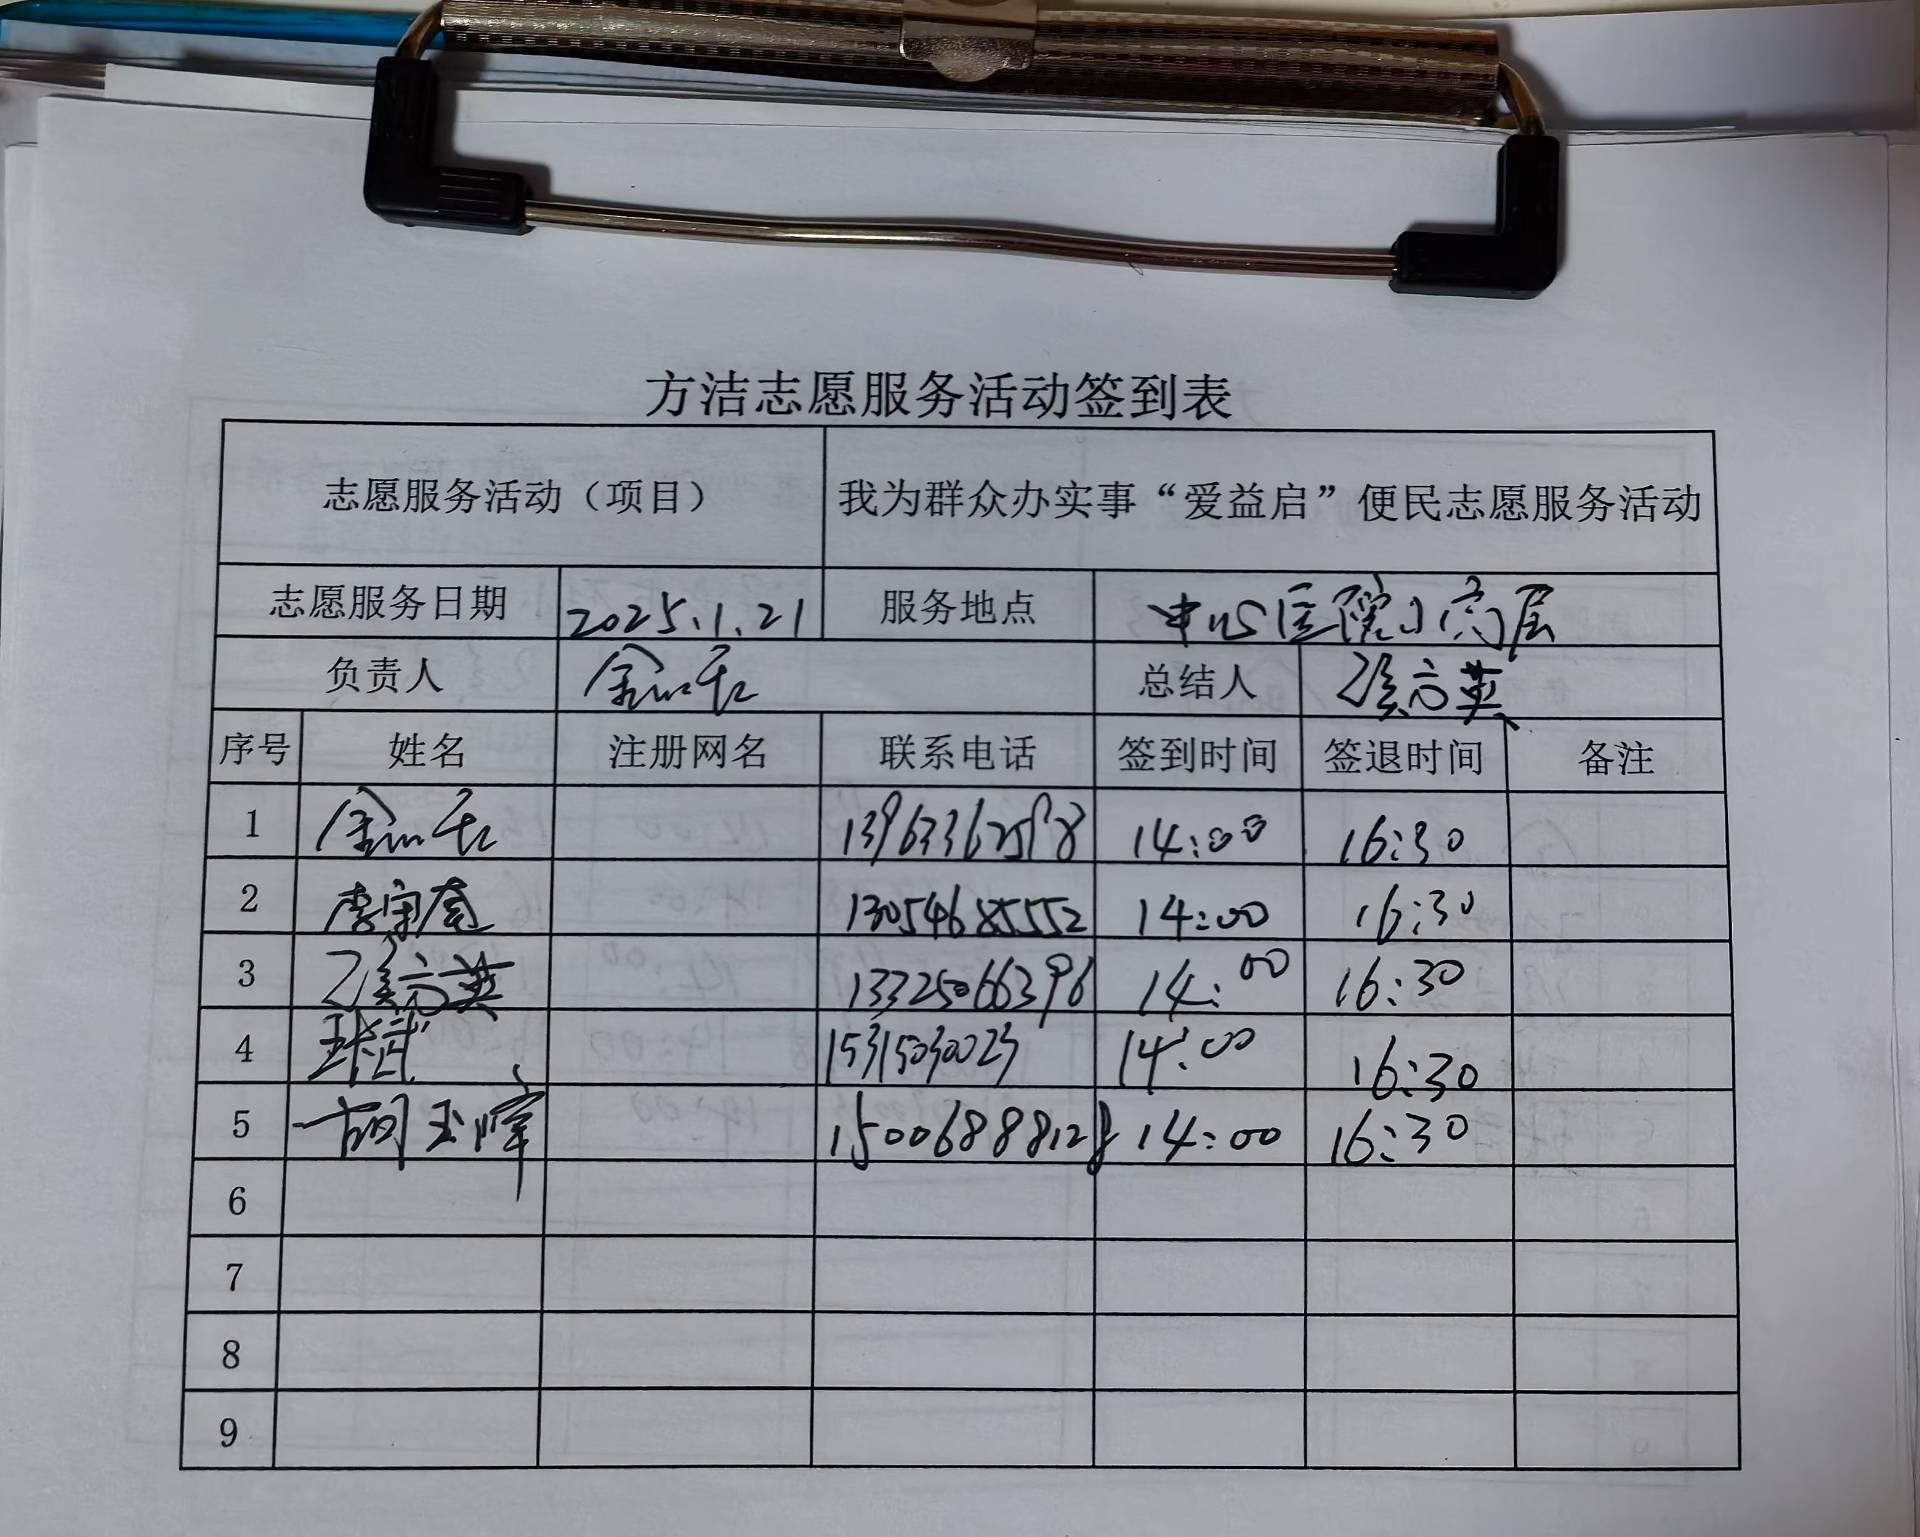 方洁志愿服务活动签到表
志愿服务活动（项目） 我为群众办实事“爱益启”便民志愿服务活动
志愿服务日期 2025.1.21 服务地点 中心医院小高层
负责人 总结人
序号 姓名 注册网名 联系电话 签到时间 签退时间 备注
1 14:00 16:30
2 13054685552 14:00 16:30
3 13325066396 14:00 16:30
4 15315030023 14:00 16:30
5 胡玉 15006888128 14:00 16:30
6
7
8
9